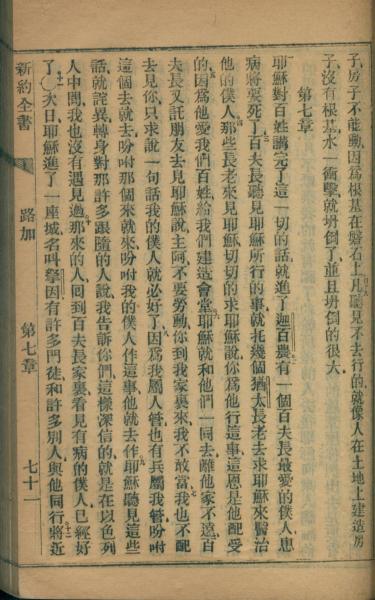 子房子不能動因爲根基在磐石上凡聽見不去行的就像人在土地上建造房
子沒有根基水一衝擊就坍倒了並且坍倒的很大
第七章
耶穌對百姓講完了這一切的話就進了迦百農有一個百夫長最愛的僕人患
病將要死了百夫長聽見耶穌所行的事就托幾個猶太長老去求耶穌來醫治
他的僕人那些長老來見耶穌切切的求耶穌說你爲他行這事這恩是他配受
的因爲他愛我們百姓給我們建造會堂耶穌就和他們一同去離他家不遠百
夫長又託朋友去見耶穌說主阿不要勞動你到我家裏來我不敢當我也不配
去見你只求說一句話我的僕人就必好了因爲我屬人管也有兵屬我管吩咐
這個去就去吩咐那個來就來吩咐我的僕人作這事他就去作耶穌聽見這些
話就詫異轉身對那許多跟隨的人說我告訴你們這樣深信的就是在以色列
人中間我也沒有遇見過那來的人回到百夫長家裏看見有病的僕人已經好
了次日耶穌進了一座城名叫拏因有許多門徒和許多別人與他同行將近
新約全書 路加 第七章 七十一